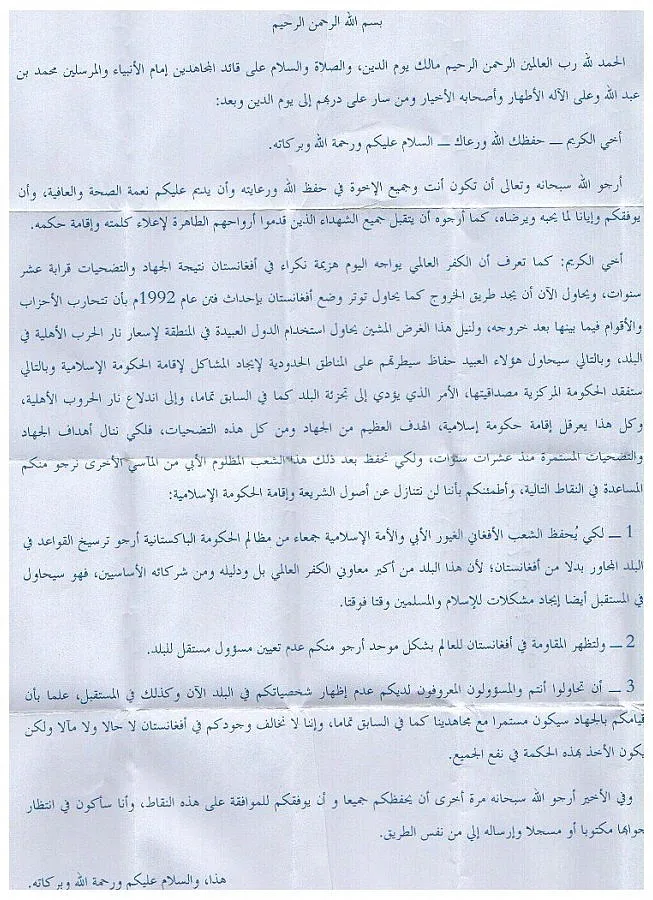 بسم الله الرحمن الرحيم
الحمد لله رب العالمين الرحمن الرحيم مالك يوم الدين، والصلاة والسلام على قائد المجاهدين إمام الأنبياء والمرسلين محمد بن
عبد الله وعلى الآله الأطهار وأصحابه الأخيار ومن سار على دربهم إلى يوم الدين وبعد:
أخي الكريم ــ حفظك الله ورعاك ــ السلام عليكم ورحمة الله وبركاته.
أرجو الله سبحانه وتعالى أن تكون أنت وجميع الإخوة في حفظ الله ورعايته وأن يديم عليكم نعمة الصحة والعافية، وأن
يوفقكم وإيانا لما يحبه ويرضاه، كما أرجوه أن يتقبل جميع الشهداء الذين قدموا أرواحهم الطاهرة لإعلاء كلمته وإقامة حكمه.
أخي الكريم: كما تعرف أن الكفر العالمي يواجه اليوم هزيمة نكراء في أفغانستان نتيجة الجهاد والتضحيات قرابة عشر
سنوات، ويحاول الآن أن يجد طريق الخروج كما يحاول توتر وضع أفغانستان بإحداث فتن عام 1992م بأن تتحارب الأحزاب
والأقوام فيما بينها بعد خروجه، ولنيل هذا الغرض المشين يحاول استخدام الدول العبيدة في المنطقة لإسعار نار الحرب الأهلية في
البلد، وبالتالي سيحاول هؤلاء العبيد حفاظ سيطرتهم على المناطق الحدودية لإيجاد المشاكل لإقامة الحكومة الإسلامية وبالتالي
ستفقد الحكومة المركزية مصداقيتها، الأمر الذي يؤدي إلى تجزئة البلد كما في السابق تماما، وإلى اندلاع نار الحروب الأهلية،
وكل هذا يعرقل إقامة حكومة إسلامية، الهدف العظيم من الجهاد ومن كل هذه التضحيات، فلكي ننال أهداف الجهاد
والتضحيات المستمرة منذ عشرات سنوات، ولكي نحفظ بعد ذلك هذا الشعب المظلوم الأبي من المآسي الأخرى نرجو منكم
المساعدة في النقاط التالية، وأطمئنكم بأننا لن نتنازل عن أصول الشريعة وإقامة الحكومة الإسلامية:
1 ــ لكي يُحفظ الشعب الأفغاني الغيور الأبي والأمة الإسلامية جمعاء من مظالم الحكومة الباكستانية أرجو ترسيخ القواعد في
البلد المجاور بدلا من أفغانستان؛ لأن هذا البلد من أكبر معاوني الكفر العالمي بل ودليله ومن شركائه الأساسيين، فهو سيحاول
في المستقبل أيضا إيجاد مشكلات للإسلام والمسلمين وقتا فوقتا.
2 ــ ولتظهر المقاومة في أفغانستان للعالم بشكل موحد أرجو منكم عدم تعيين مسؤول مستقل للبلد.
3 ــ أن تحاولوا أنتم والمسؤولون المعروفون لديكم عدم إظهار شخصياتكم في البلد الآن وكذلك في المستقبل، علما بأن
قيامكم بالجهاد سيكون مستمرا مع مجاهدينا كما في السابق تماما، وإننا لا نخالف وجودكم في أفغانستان لا حالا ولا مآلا ولكن
يكون الأخذ بهذه الحكمة في نفع الجميع.
وفي الأخير أرجو الله سبحانه مرة أخرى أن يحفظكم جميعا و أن يوفقكم للموافقة على هذه النقاط، وأنا سأكون في انتظار
جوابها مكتوبا أو مسجلا وإرساله إلي من نفس الطريق.
هذا، والسلام عليكم ورحمة الله وبركاته.